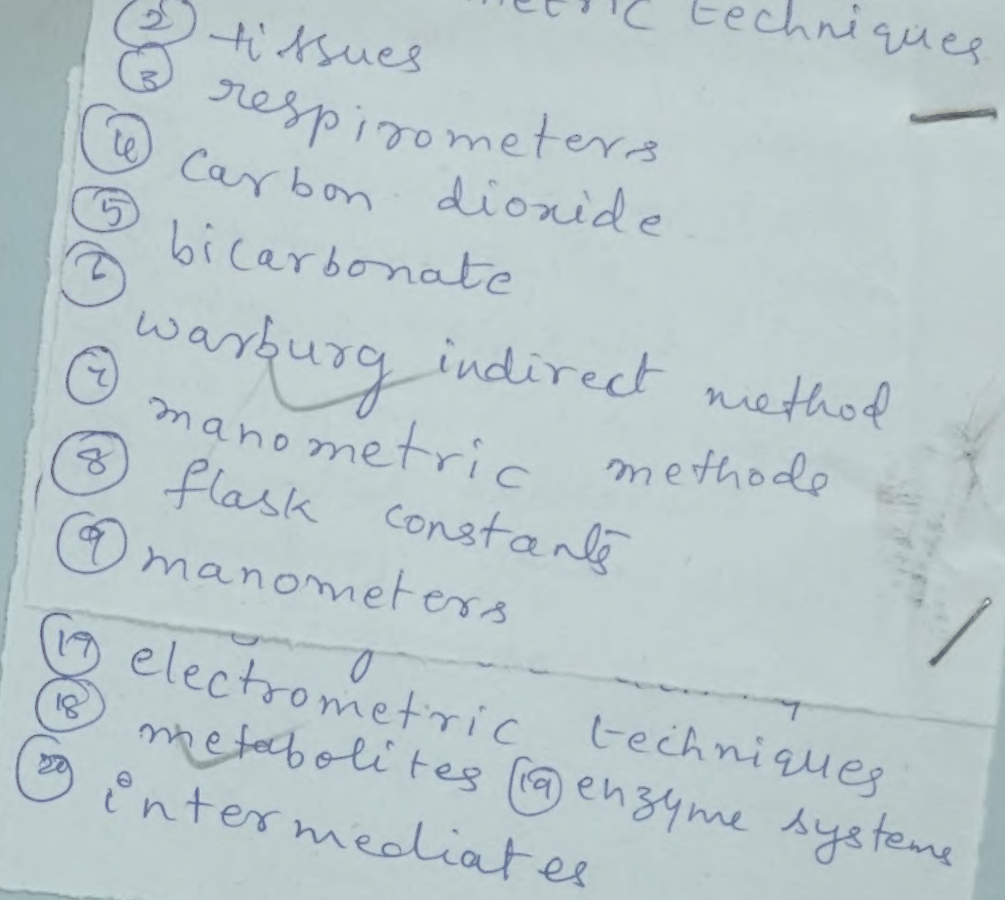 techniques
② tissues
③ respirometers
④ carbon dioxide
⑤ bicarbonate
⑥ warburg indirect method
⑦ manometric methods
⑧ flask constants
⑨ manometers
⑰ electrometric techniques
⑱ metabolites ⑲ enzyme systems
⑳ intermediates